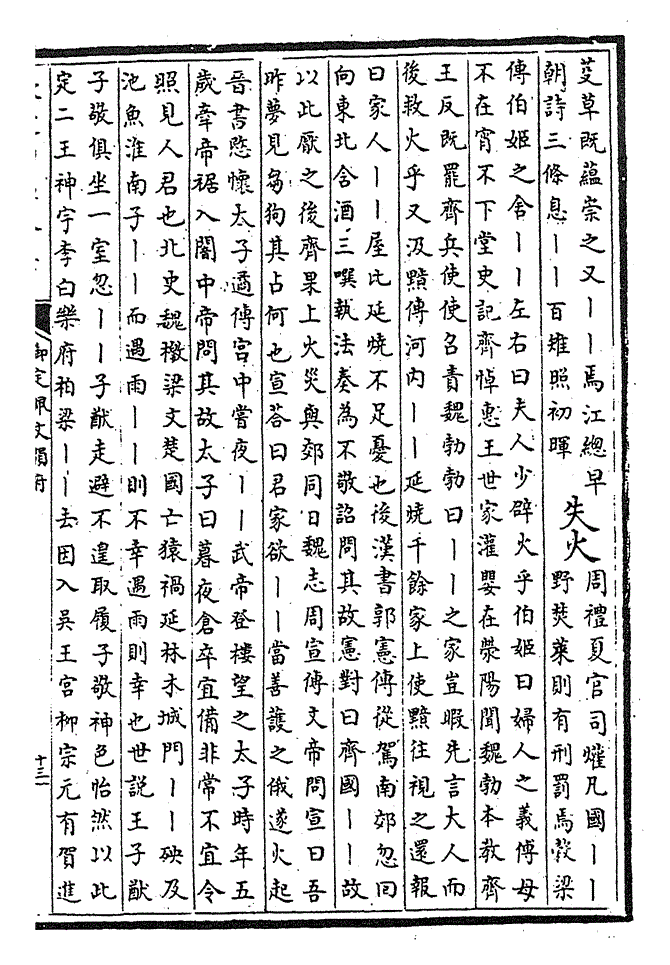 芟草既蘊崇之又丨丨焉江總早
朝詩三條息丨丨百雉照初暉
失火
周禮夏官司爟凡國丨丨
野焚萊則有刑罰焉穀梁
傳伯姬之舍丨丨左右曰夫人少辟火乎伯姬曰婦人之義傅母
不在宵不下堂史記齊悼惠王世家灌嬰在滎陽聞魏勃本教齊
王反既罷齊兵使使召責魏勃勃曰丨丨之家豈暇先言大人而
後救火乎又汲黯傳河內丨丨延燒千餘家上使黯往視之還報
曰家人丨丨屋比延燒不足憂也後漢書郭憲傳從駕南郊忽回
向東北含酒三噀執法奏為不敬詔問其故憲對曰齊國丨丨故
以此厭之後齊果上火災與郊同日魏志周宣傳文帝問宣曰吾
昨夢見芻狗其占何也宣荅曰君家欲丨丨當善護之俄遂火起
晉書愍懷太子遹傳宮中嘗夜丨丨武帝登樓望之太子時年五
歲牽帝裾入闇中帝問其故太子曰暮夜倉卒宜備非常不宜令
照見人君也北史魏檄梁文楚國亡猿禍延林木城門丨丨殃及
池魚淮南子丨丨而遇雨丨丨則不幸遇雨則幸也世說王子猷
子敬俱坐一室忽丨丨子猷走避不遑取履子敬神色怡然以此
定二王神宇李白樂府柏梁丨丨去因入吳王宮柳宗元有賀進
御定佩文韻府
十三